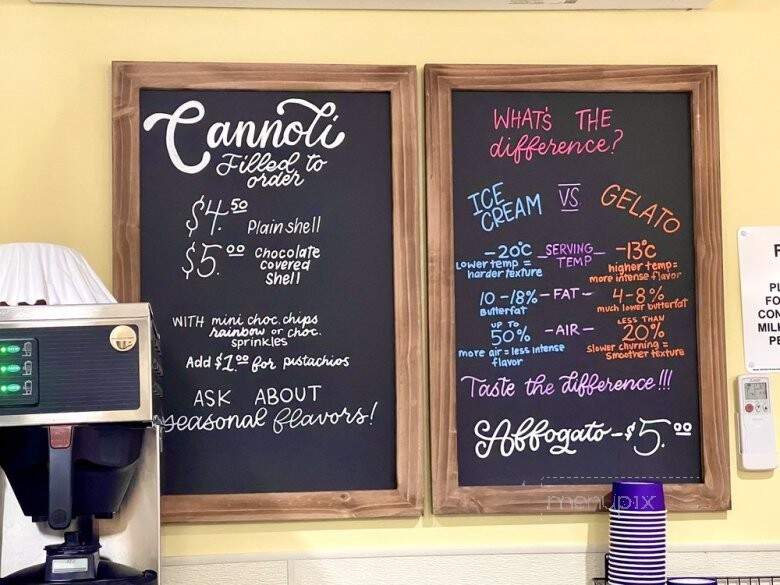 Cannoli
Filled to
order
$4.50 Plain shell
$5.00 Chocolate
covered
Shell
WITH mini choc. chips
rainbow or choc.
sprinkles
Add $1.00 for pistachios
ASK ABOUT
seasonal flavors!
WHAT'S THE
difference?
ICE CREAM VS GELATO
-20°C - SERVING TEMP - -13°C
Lower temp =
harder texture
higher temp=
more intense flavor
10-18% - FAT - 4-8%
Butterfat
much lower butterfat
UP TO
50% - AIR - LESS THAN
20%
more air = less intense
flavor
Slower churning =
Smoother texture
Taste the difference!!!
Affogato - $5.00
menupix
F
PL
FO
CON
MIL
PE